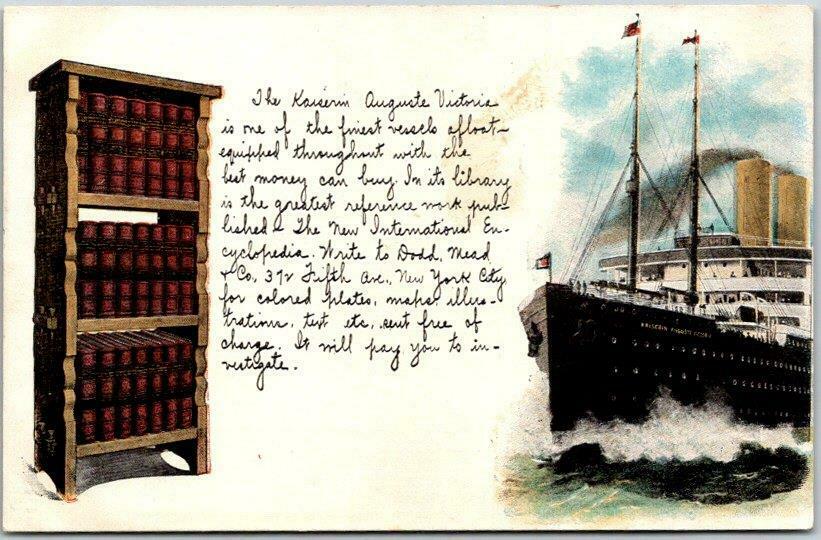 The Kaiserin Auguste Victoria
is one of the finest vessels afloat-
equipped throughout with the
best money can buy. In its library
is the greatest reference work pub-
lished - The New International En-
cyclopedia. Write to Dodd, Mead
& Co, 372 Fifth Ave., New York City,
for colored plates, maps, illus-
trations, text etc. sent free of
charge. It will pay you to in-
vestigate.
KAISERIN AUGUSTE VICTORIA